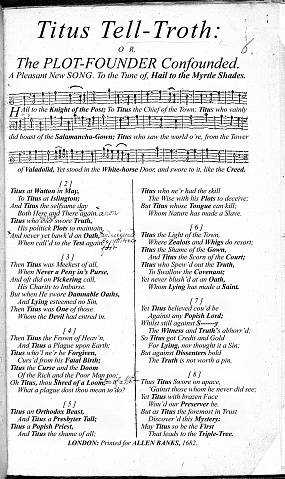 Titus Tell-Troth:
OR,
The PLOT-FOUNDER Confounded.
A Pleasant New SONG. To the Tune of, Hail to the Myrtle Shades.
HAil to the Knight of the Post; To Titus the Chief of the Town; Titus who vainly
did boast of the Salamancha-Gown; Titus who saw the world o're, from the Tower
of Valadolid, Yet stood in the White-horse Door, and swore to it, like the Creed.
[2]
Titus at Watton in May,
To Titus at Islington;
And Titus the selfsame day
Both Here and There again.
Titus who ever swore Truth,
His politick Plots to maintain,
And never yet hawk'd an Oath,
When call'd to the Test again.
[3]
Then Titus was Meekest of all,
When Never a Peny in's Purse,
And oft did on Pickering call,
His Charity to Imburse.
But when He swore Damnable Oaths,
And Lying esteemed no Sin,
Then Titus was One of those
Whom the Devil had entred in.
[4]
Then Titus the Frown of Heav'n,
And Titus a Plague upon Earth;
Titus who'l ne'r be Forgiven,
Curs'd from his Fatal Birth;
Titus the Curse and the Doom
Of the Rich and the Poor Man too;
Oh Titus, thou Shred of a Loom,
What a plague dost thou mean to do?
[5]
Titus an Orthodox Beast,
And Titus a Presbyter Tall;
Titus a Popish Priest,
And Titus the shame of all;
Titus who ne'r had the skill
The Wise with his Plots to deceive;
But Titus whose Tongue can kill;
Whom Nature has made a Slave.
[6]
Titus the Light of the Town,
Where Zealots and Whigs do resort;
Titus the Shame of the Gown,
And Titus the Scorn of the Court;
Titus who Spew'd out the Truth,
To Swallow the Covenant;
Yet never blush'd at an Oath,
Whom Lying has made a Saint.
[7]
Yet Titus believed cou'd be
Against any Popish Lord;
Whilst still against S——y
The Witness and Truth's abhorr'd;
So Titus got Credit and Gold
For Lying, nor thought it a Sin;
But against Dissenters bold
The Truth is not worth a pin.
[8]
Thus Titus Swore on apace,
'Gainst those whom he never did see;
Yet Titus with brazen Face
Wou'd our Preserver be.
But as Titus the foremost in Trust
Discover'd this Mystery:
May Titus so be the First
That leads to the Triple-Tree.
LONDON: Printed for ALLEN BANKS, 1682.